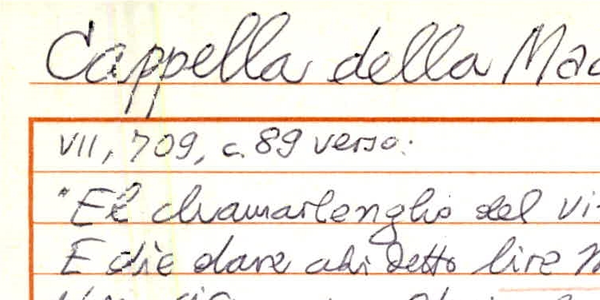 Cappella della Mad
VII, 709, c. 89 verso:
"El chamarlengho del vi
E die dare adi detto lire